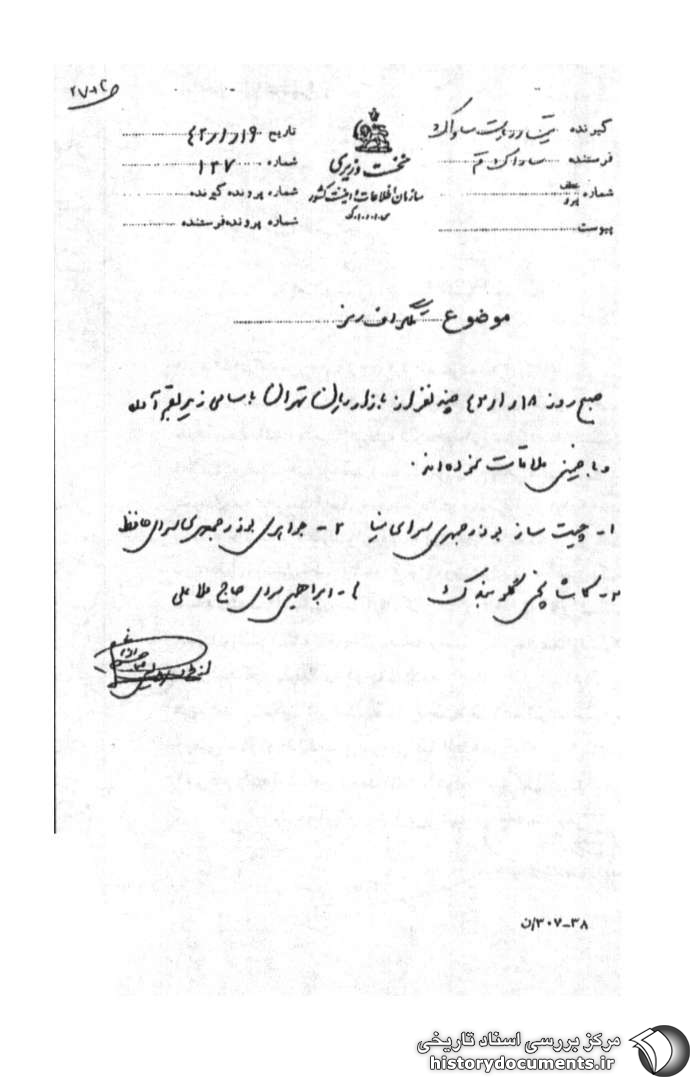 گیرنده تیمسار ریاست ساواک
فرستنده ساواک قم
شماره عطف پیرو
پیوست
نخست وزیری
سازمان اطلاعات و امنیت کشور
س.ا.و.ا.ک
تاریخ ۴۲/۱/۱۹
شماره ۱۲۷
شماره پرونده گیرنده
شماره پرونده فرستنده
موضوع تلگراف رمز
صبح روز ۴۲/۱/۱۸ چند نفر از بازاریان تهران باسامی زیر بقم آمده
و با خمینی ملاقات نموده‌اند.
۱- چیت ساز بوذرجمهری سرای سینا ۲- جواهری بوذرجمهری سرای حافظ
۳- ۴- ابراهیمی سرای حاج ملا علی
۳۸-۳۰۷/ن
مرکز بررسی اسناد تاریخی
historydocuments.ir